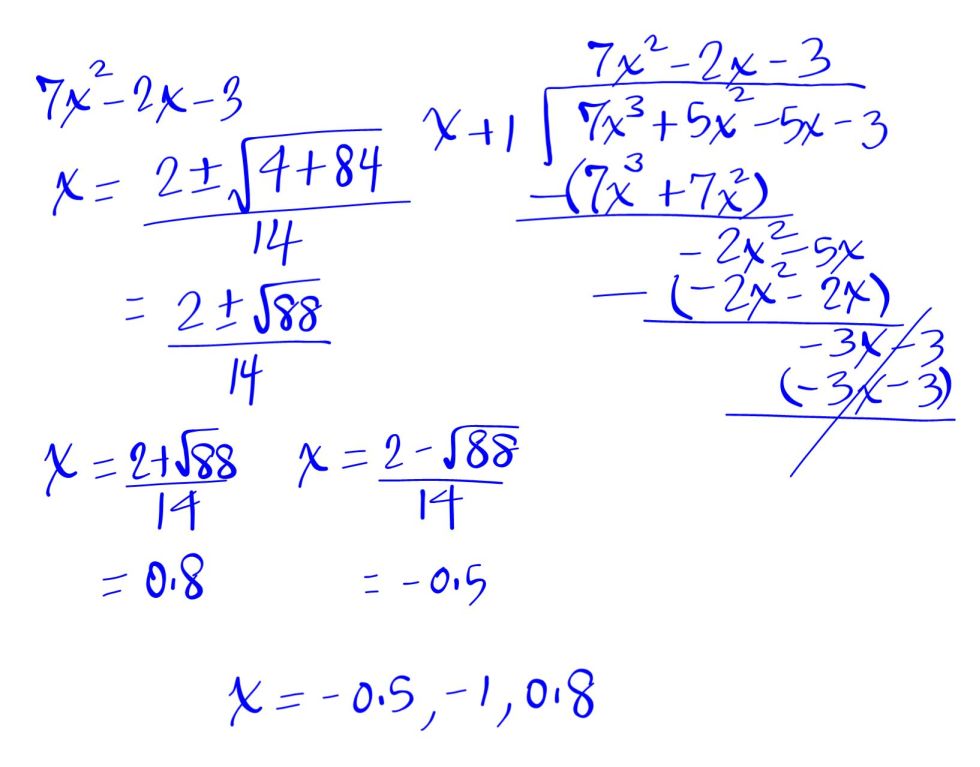 7x² - 2x - 3
x = (2 ± √(4 + 84)) / 14
= (2 ± √88) / 14
x = (2 + √88) / 14
= 0.8
x = (2 - √88) / 14
= -0.5
7x² - 2x - 3
x + 1 √ 7x³ + 5x² - 5x - 3
-(7x³ + 7x²)
- 2x² - 5x
- (-2x² - 2x)
- 3x - 3
(-3x - 3)
x = -0.5, -1, 0.8